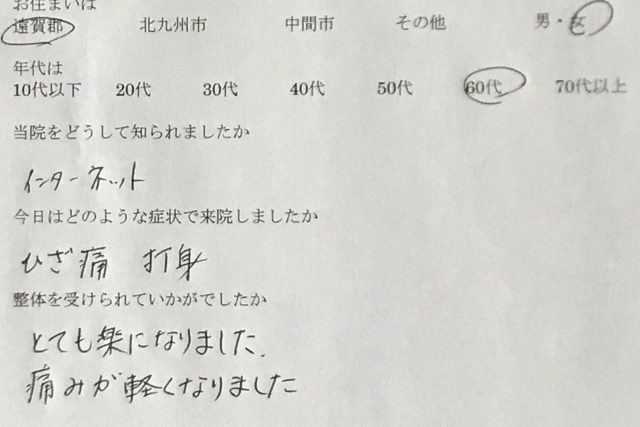 お住まいは
遠賀郡 北九州市 中間市 その他 男・女
年代は
10代以下 20代 30代 40代 50代 60代 70代以上
当院をどうして知られましたか
インターネット
今日はどのような症状で来院しましたか
ひざ痛 打身
整体を受けられていかがでしたか
とても楽になりました.
痛みが軽くなりました